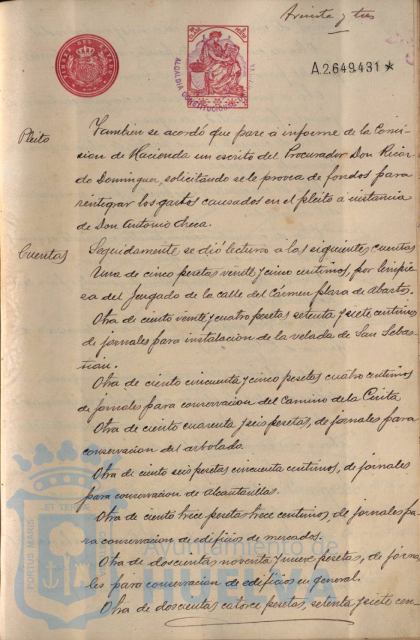 Treinta y tres
TIMBRE DEL ESTADO
ALCALDIA CONSTITUCIONAL
A.2.649.431 *
Pleito
Tambien se acordó que pase á informe de la Comi-
sion de Hacienda un escrito del Procurador Don Ricar-
do Dominguez, solicitando se le provea de fondos para
reintegrar los gastos causados en el pleito a instancia
de Don Antonio Checa.
Cuentas
Seguidamente se dió lectura a las siguientes cuentas
Una de cinco pesetas veinte y cinco centimos, por limpie-
za del Juzgado de la calle del Cármen plaza de Abastos.
Otra de ciento veinte y cuatro pesetas setenta y siete centimos
de jornales para instalacion de la velada de San Sebas-
tian.
Otra de ciento cincuenta y cinco pesetas cuatro centimos
de jornales para conservacion del Camino de la Cinta
Otra de ciento cuarenta y seis pesetas, de jornales para
conservacion del arbolado.
Otra de ciento seis pesetas cincuenta centimos, de jornales
para conservacion de alcantarillas.
Otra de ciento trece pesetas trece centimos, de jornales pa-
ra conservacion de edificios de mercados.
Otra de doscientas noventa y nueve pesetas, de jorna-
les para conservacion de edificios en general.
Otra de doscientas catorce pesetas, setenta y siete cen-
PORTUS MARIS
ET TERRAE
Ayuntamiento de
HUELVA